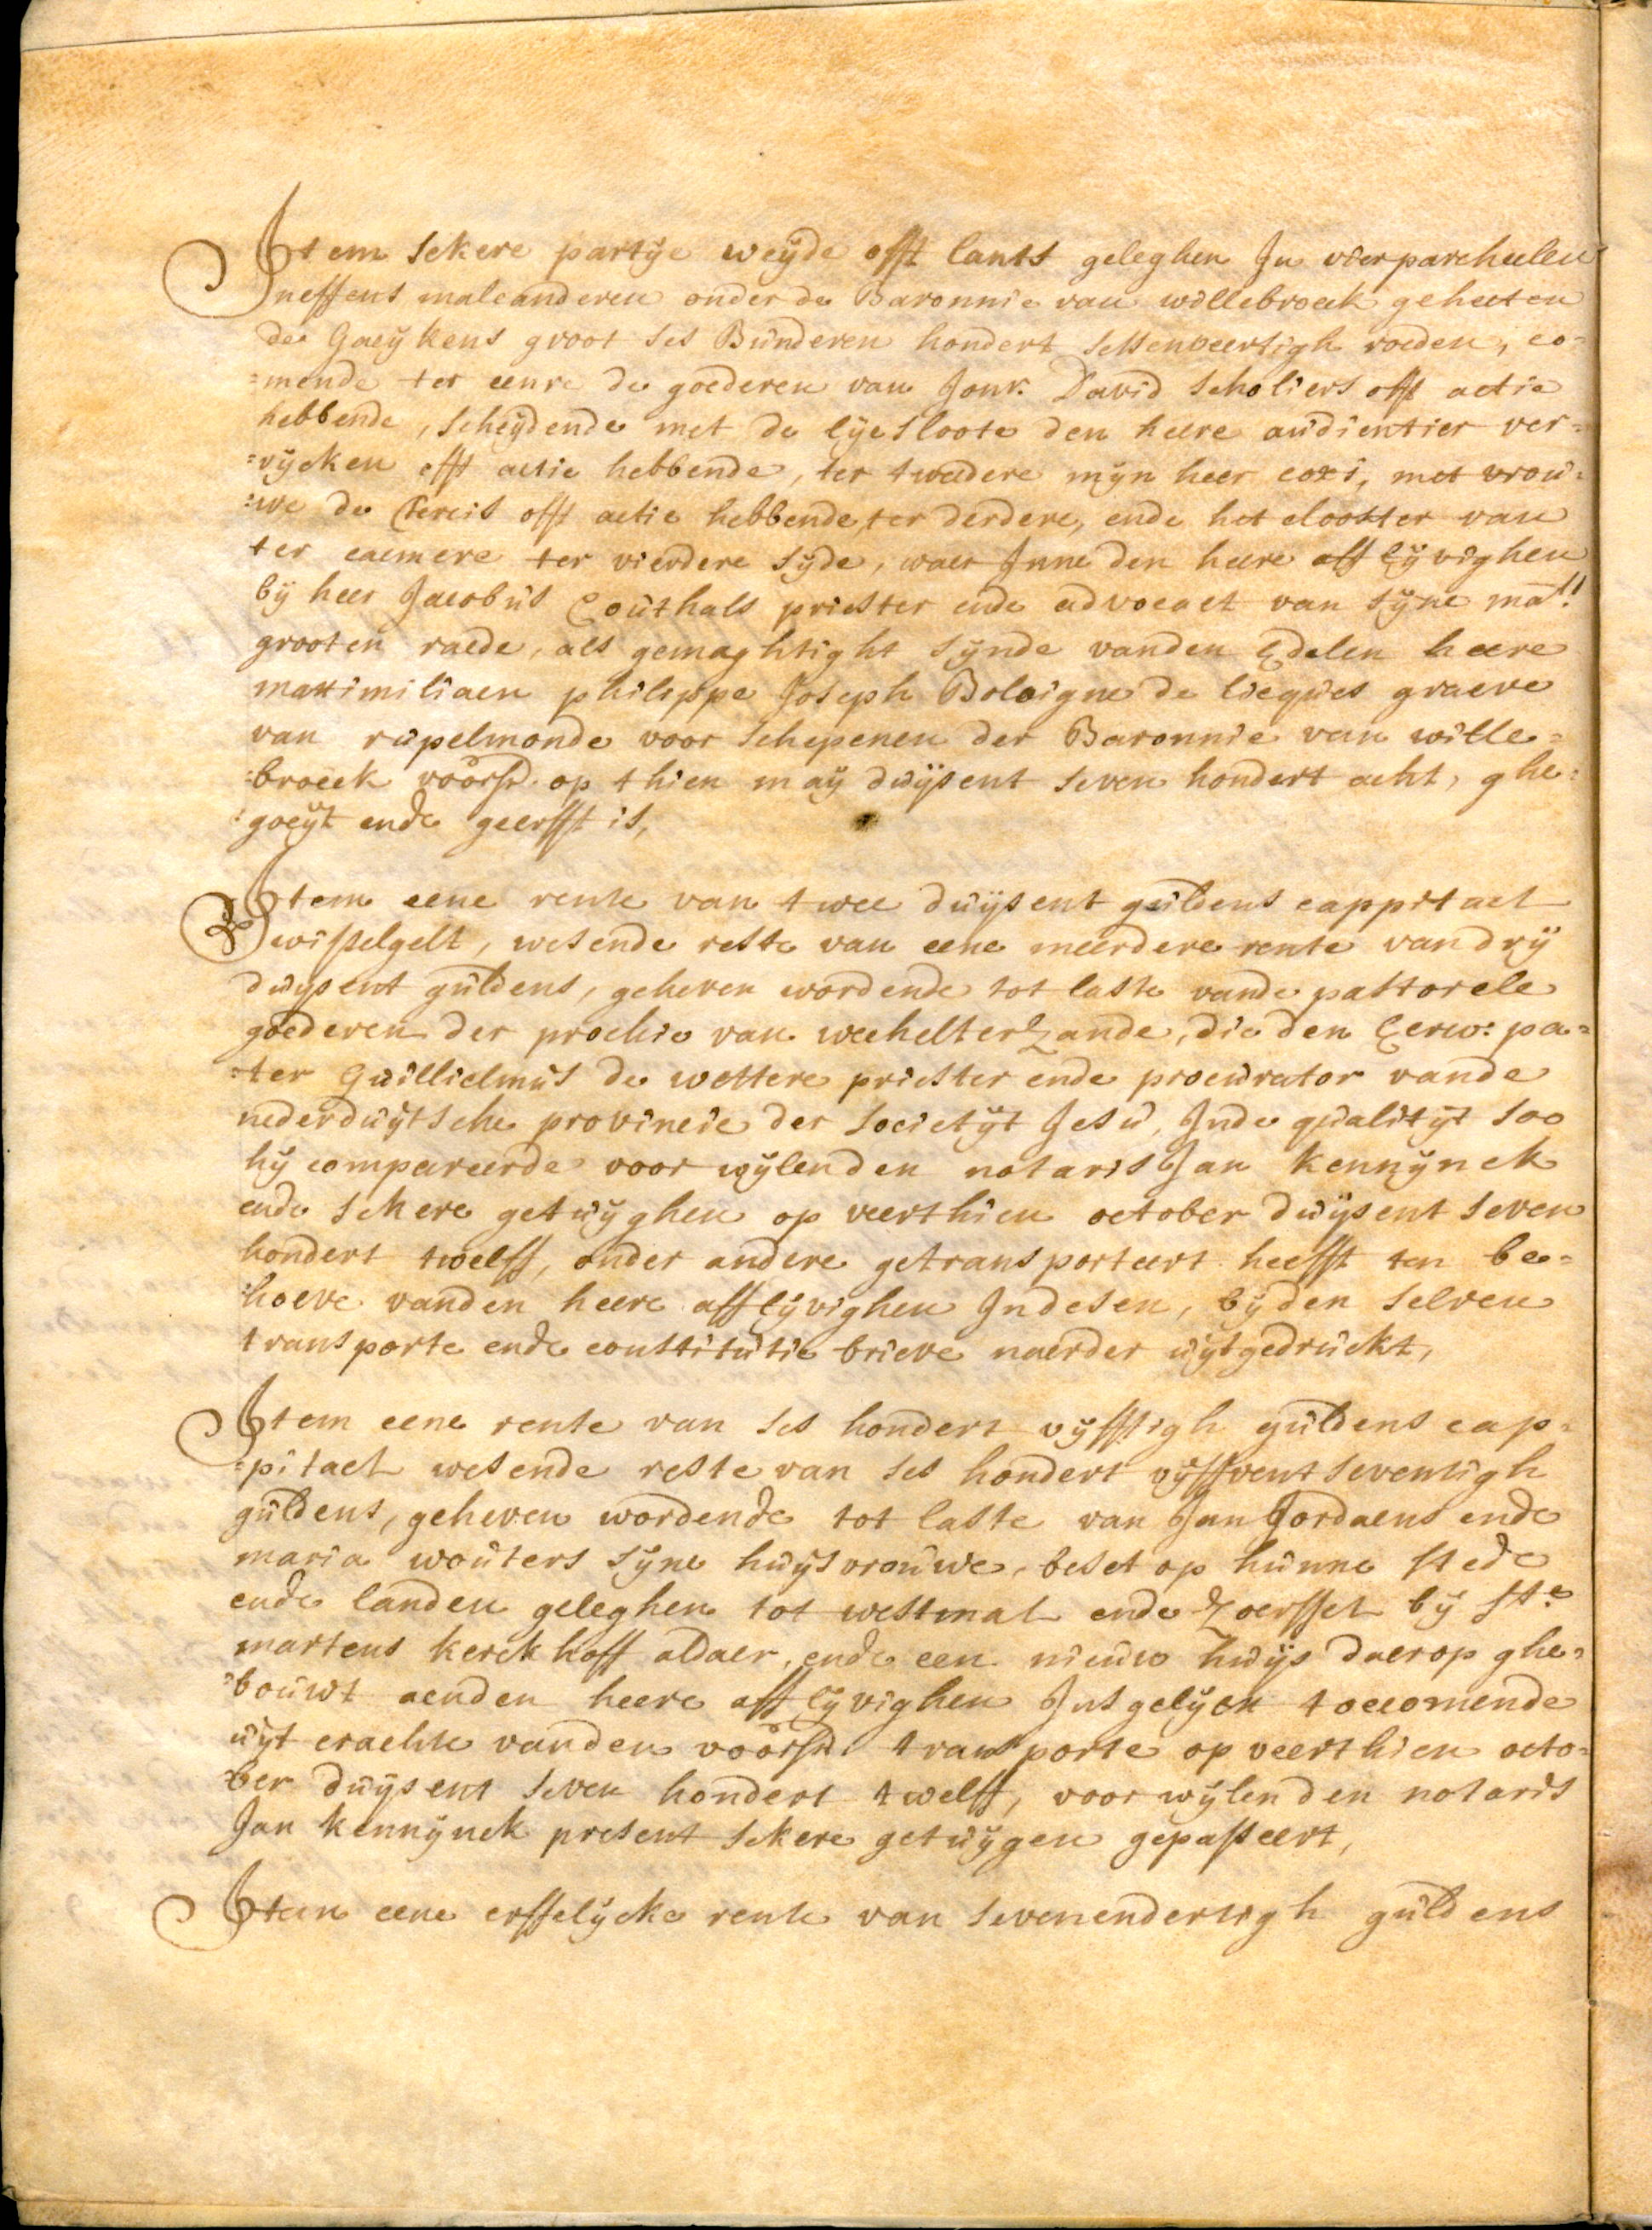 Item sekere partije weijde offt lants geleghen In vier parcheelen
neffens malcanderen onder de Baronnie van willebroeck geheeten
de Gaeijkens groot ses Bunderen hondert sessenveertigh roeden, co=
=mende ter eenre de goederen van Jonr. David Scholiers offt actie
hebbende, scheijdende met de lije sloote den heere audientier ver=
=rijcken offt actie hebbende, ter tweedere mijn heer coxi, met vrou=
=we de Clercis offt actie hebbende, ter derdere, ende het clooster van
ter caemere ter vierdere sijde, waer Inne den heere afflijvighen
bij heer Jacobus Couthals priester ende advocaet van sijne mat.
grooten raede, als gemaghtight sijnde vanden Edelen heere
maximiliaen philippe Joseph Boloigne de liecques graeve
van rupelmonde voor schepenen der Baronnie van wille=
=broeck voorsd. op thien maij duijsent seven hondert acht, ghe=
=goeijt ende geerfft is,
Item eene rente van twee duijsent guldens cappitael
wisselgelt, wesende reste van eene meerdere rente van drij
duijsent guldens, geheven wordende tot laste vande pastorele
goederen der prochie van wechelterzande, die den Eerw: pa=
=ter Guillielmus de wettere priester ende procurator vande
nederduijtsche provincie der societijt Jesu, Inde qualitijt soo
hij compareerde voor wijlen den notaris Jan kennijnck
ende sekere getuijghen op veerthien october duijsent seven
hondert twelff, onder andere getransporteert heefft ten be=
=hoeve vanden heere afflijvighen Indesen, bijden selven
transporte ende constitutie brieve naerder uijtgedruckt,
Item eene rente van ses hondert vijfftigh guldens cap=
=pitael wesende reste van ses hondert vijffventseventigh
guldens, geheven wordende tot laste van Jan Jordaens ende
maria wouters sijne huijsvrouwe, beset op hunne stede
ende landen geleghen tot westmal ende Zoerssel bij ste
martens kerckhoff aldaer, ende een nieuw huijs daer op ghe=
=bouwt aenden heere afflijvighen Insgelijcx toecomende
uijt crachte vanden voorsd. transporte op veerthien octo=
=ber duijsent seven hondert twelff, voor wijlen den notaris
Jan kennijnck present sekere getuijgen gepasseert,
Item eene erffelijcke rente van sevenendertigh guldens